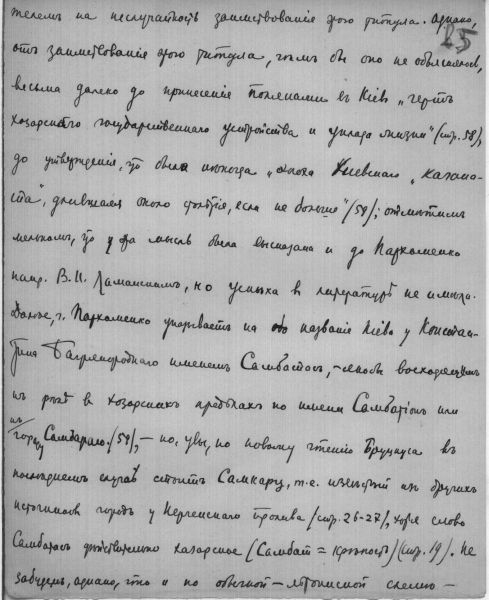 телемъ на неслучайность заимствованія этого титула. Однако,
25
отъ заимствованія этого титула, чѣмъ бы оно не объяснялось,
весьма далеко до принесенія Полянами въ Кіевъ „чертъ
хозарскаго государственнаго устройства и уклада жизни" (стр. 58),
до утвержденія, что была когда „эпоха Кіевскаго „каганa-
та", длившаяся около столѣтія, если не больше" (59); отмѣтимъ
мелькомъ, что эта мысль была высказана и до Пархоменко
напр. В. И. Ламанскимъ, но успѣха въ литературѣ не имѣла.
Далѣе, г. Пархоменко указываетъ на названіе Кіева у Констан-
тина Багрянороднаго именемъ Самбатасъ, восходящимъ
къ рѣкѣ въ хозарскихъ предѣлахъ по имени Самбатіонъ или
къ городу Самбараю (59), — но, увы, по новому чтенію Бруцкуса въ
послѣднемъ случаѣ стоитъ Самкарц, т.е. извѣстный изъ другихъ
источниковъ городъ у Керченскаго пролива (стр. 26-27), хотя слово
Самбатасъ дѣйствительно хазарское (Самбат = крѣпость) (стр. 19). Не
забудемъ, однако, что и по обычной — лѣтописной схемѣ —